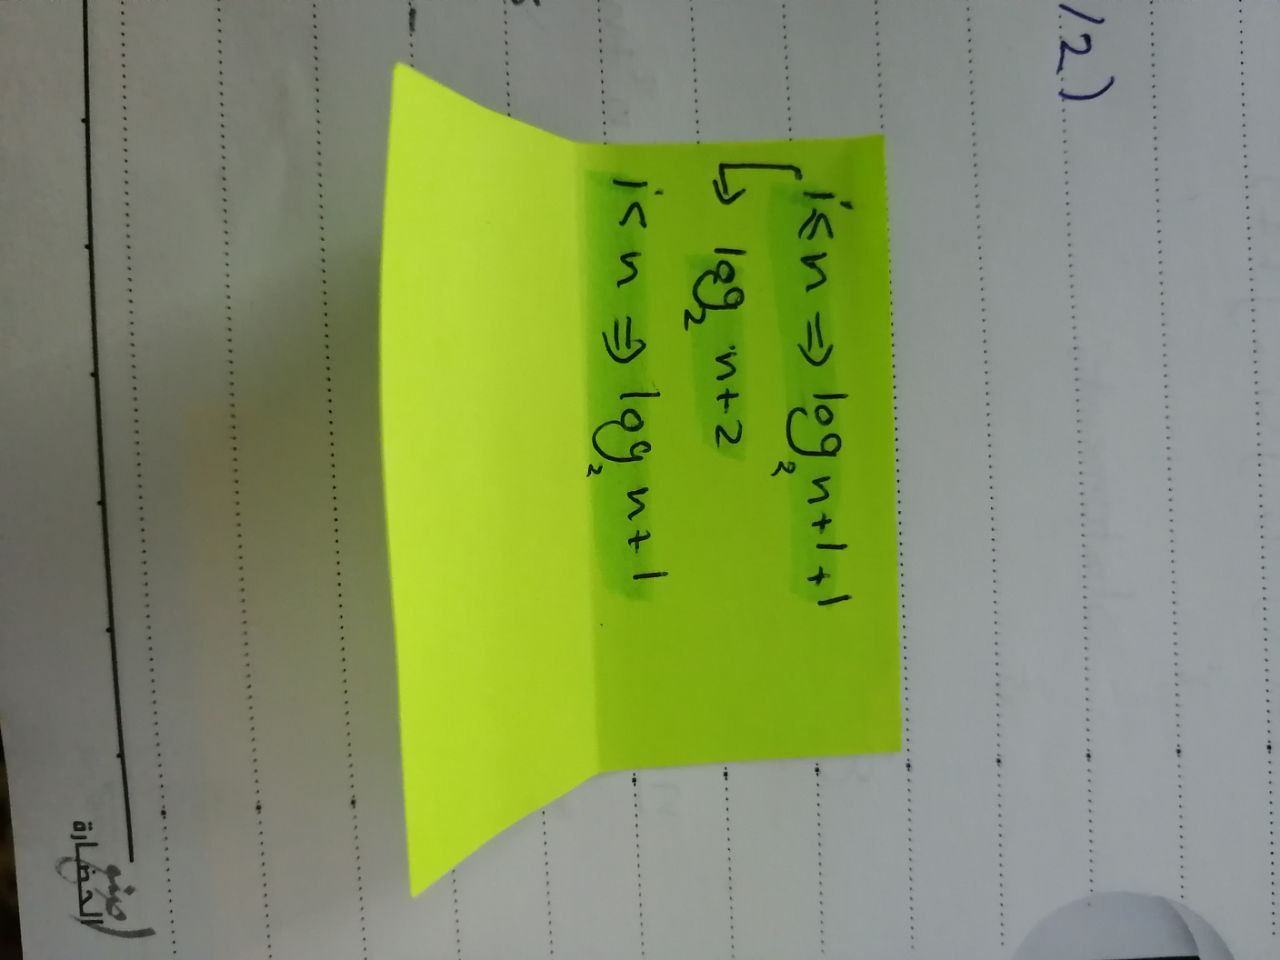 /2)
i≤n ⇒ log₂ n+1+1
↳ log₂ n+2
i<n ⇒ log₂ n+1
الحضارة